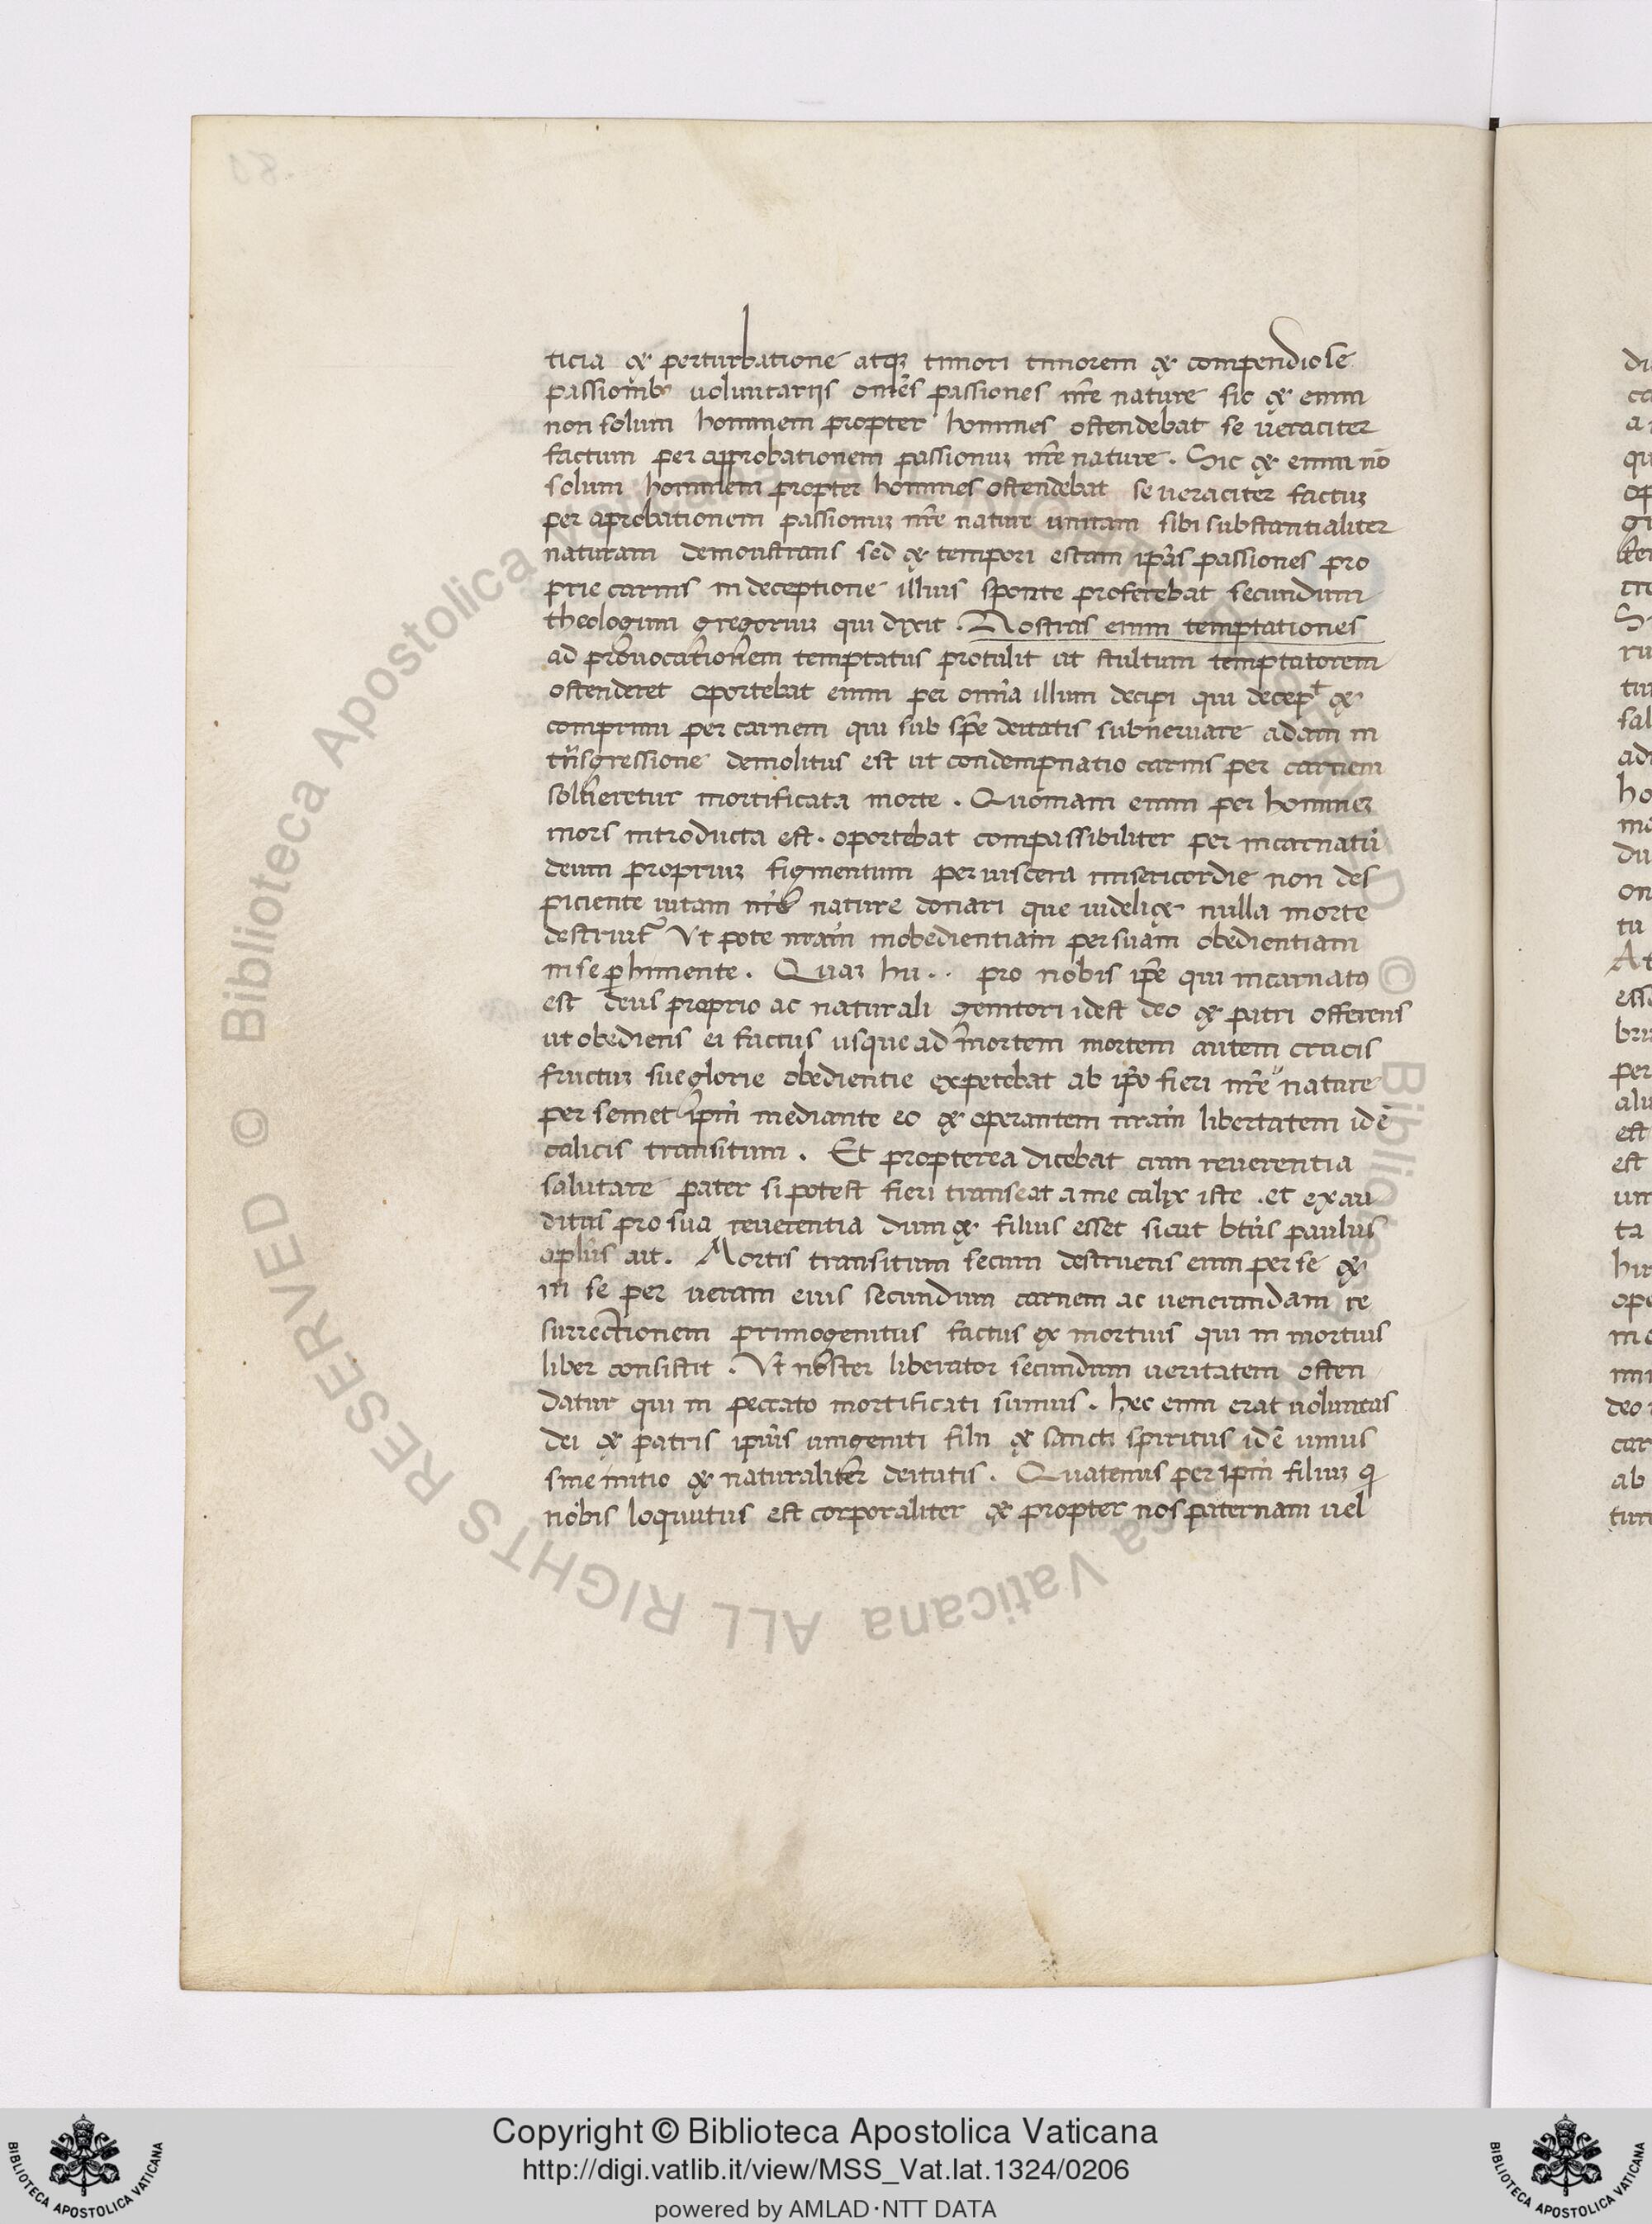 ticia et perturbatione atq; timori timorem et compendiose
passionib; voluntariis om̄es passiones nr̄e nature sic et enim
non solum hominem propter homines ostendebat se veraciter
factum per approbationem passionuz nr̄e nature. Sic et enim nō
solum hominem propter homines ostendebat se veraciter factuz
per aprobationem passionuz nr̄e nature unitam sibi substantialiter
naturam demonstrans sed et tempori estam ip̄as passiones pro
prie carnis in deceptione illius sponte proferebat secundum
theologum gregoriuz qui dixit. Nostras enim temptationes
ad provocationem temptatus protulit ut stultum temptatorem
ostenderet oportebat enim per omnia illum decipi qui decept et
comprimi per carnem qui sub spe deitatis subnervare adam in
trnsgressione demolitus est ut condempnatio carnis per carnem
solveretur mortificata morte. Quoniam enim per hominez
mors introducta est. oportebat compassibiliter per incarnatū
deum propriuz figmentum per viscera misericordie non des
piciente vitam nr̄e nature donari que videlicet nulla morte
destruit᷑ Ut pote nrām inobedientiam per suam obedientiam
in se perhimente. Quaz hu.. pro nobis ip̄e qui incarnatꝰ
est deus proprio ac naturali genitori idest deo et patri offerens
ut obediens ei factus usque ad mortem mortem autem crucis
fructuz sue glorie obedientie expetebat ab ip̄o fieri nr̄e nature
per semet ip̄m mediante eo et operantem nrām libertatem id ē
calicis transitum. Et propterea dicebat cum reverentia
salutare pater si potest fieri transeat a me calix iste. et exau
ditus pro sua reverentia dum et filius esset sicut bt̄us paulus
apl̄us ait. Mortis transitum secum destruens enim per se et
in se per veram eius secundum carnem ac venerandam re
surrectionem primogenitus factus ex mortuis qui in mortuis
liber consistit. Ut noster liberator secundum veritatem osten
datur qui in peccato mortificati sumus. hec enim erat voluntas
dei et patris ipsius unigeniti filii et sancti spiritus id ē unius
sine initio et naturaliter deitatis. Quatenus per ip̄m filiuz q
nobis loquutus est corporaliter et propter nos paternam vel
Copyright © Biblioteca Apostolica Vaticana
http://digi.vatlib.it/view/MSS_Vat.lat.1324/0206
powered by AMLAD·NTT DATA